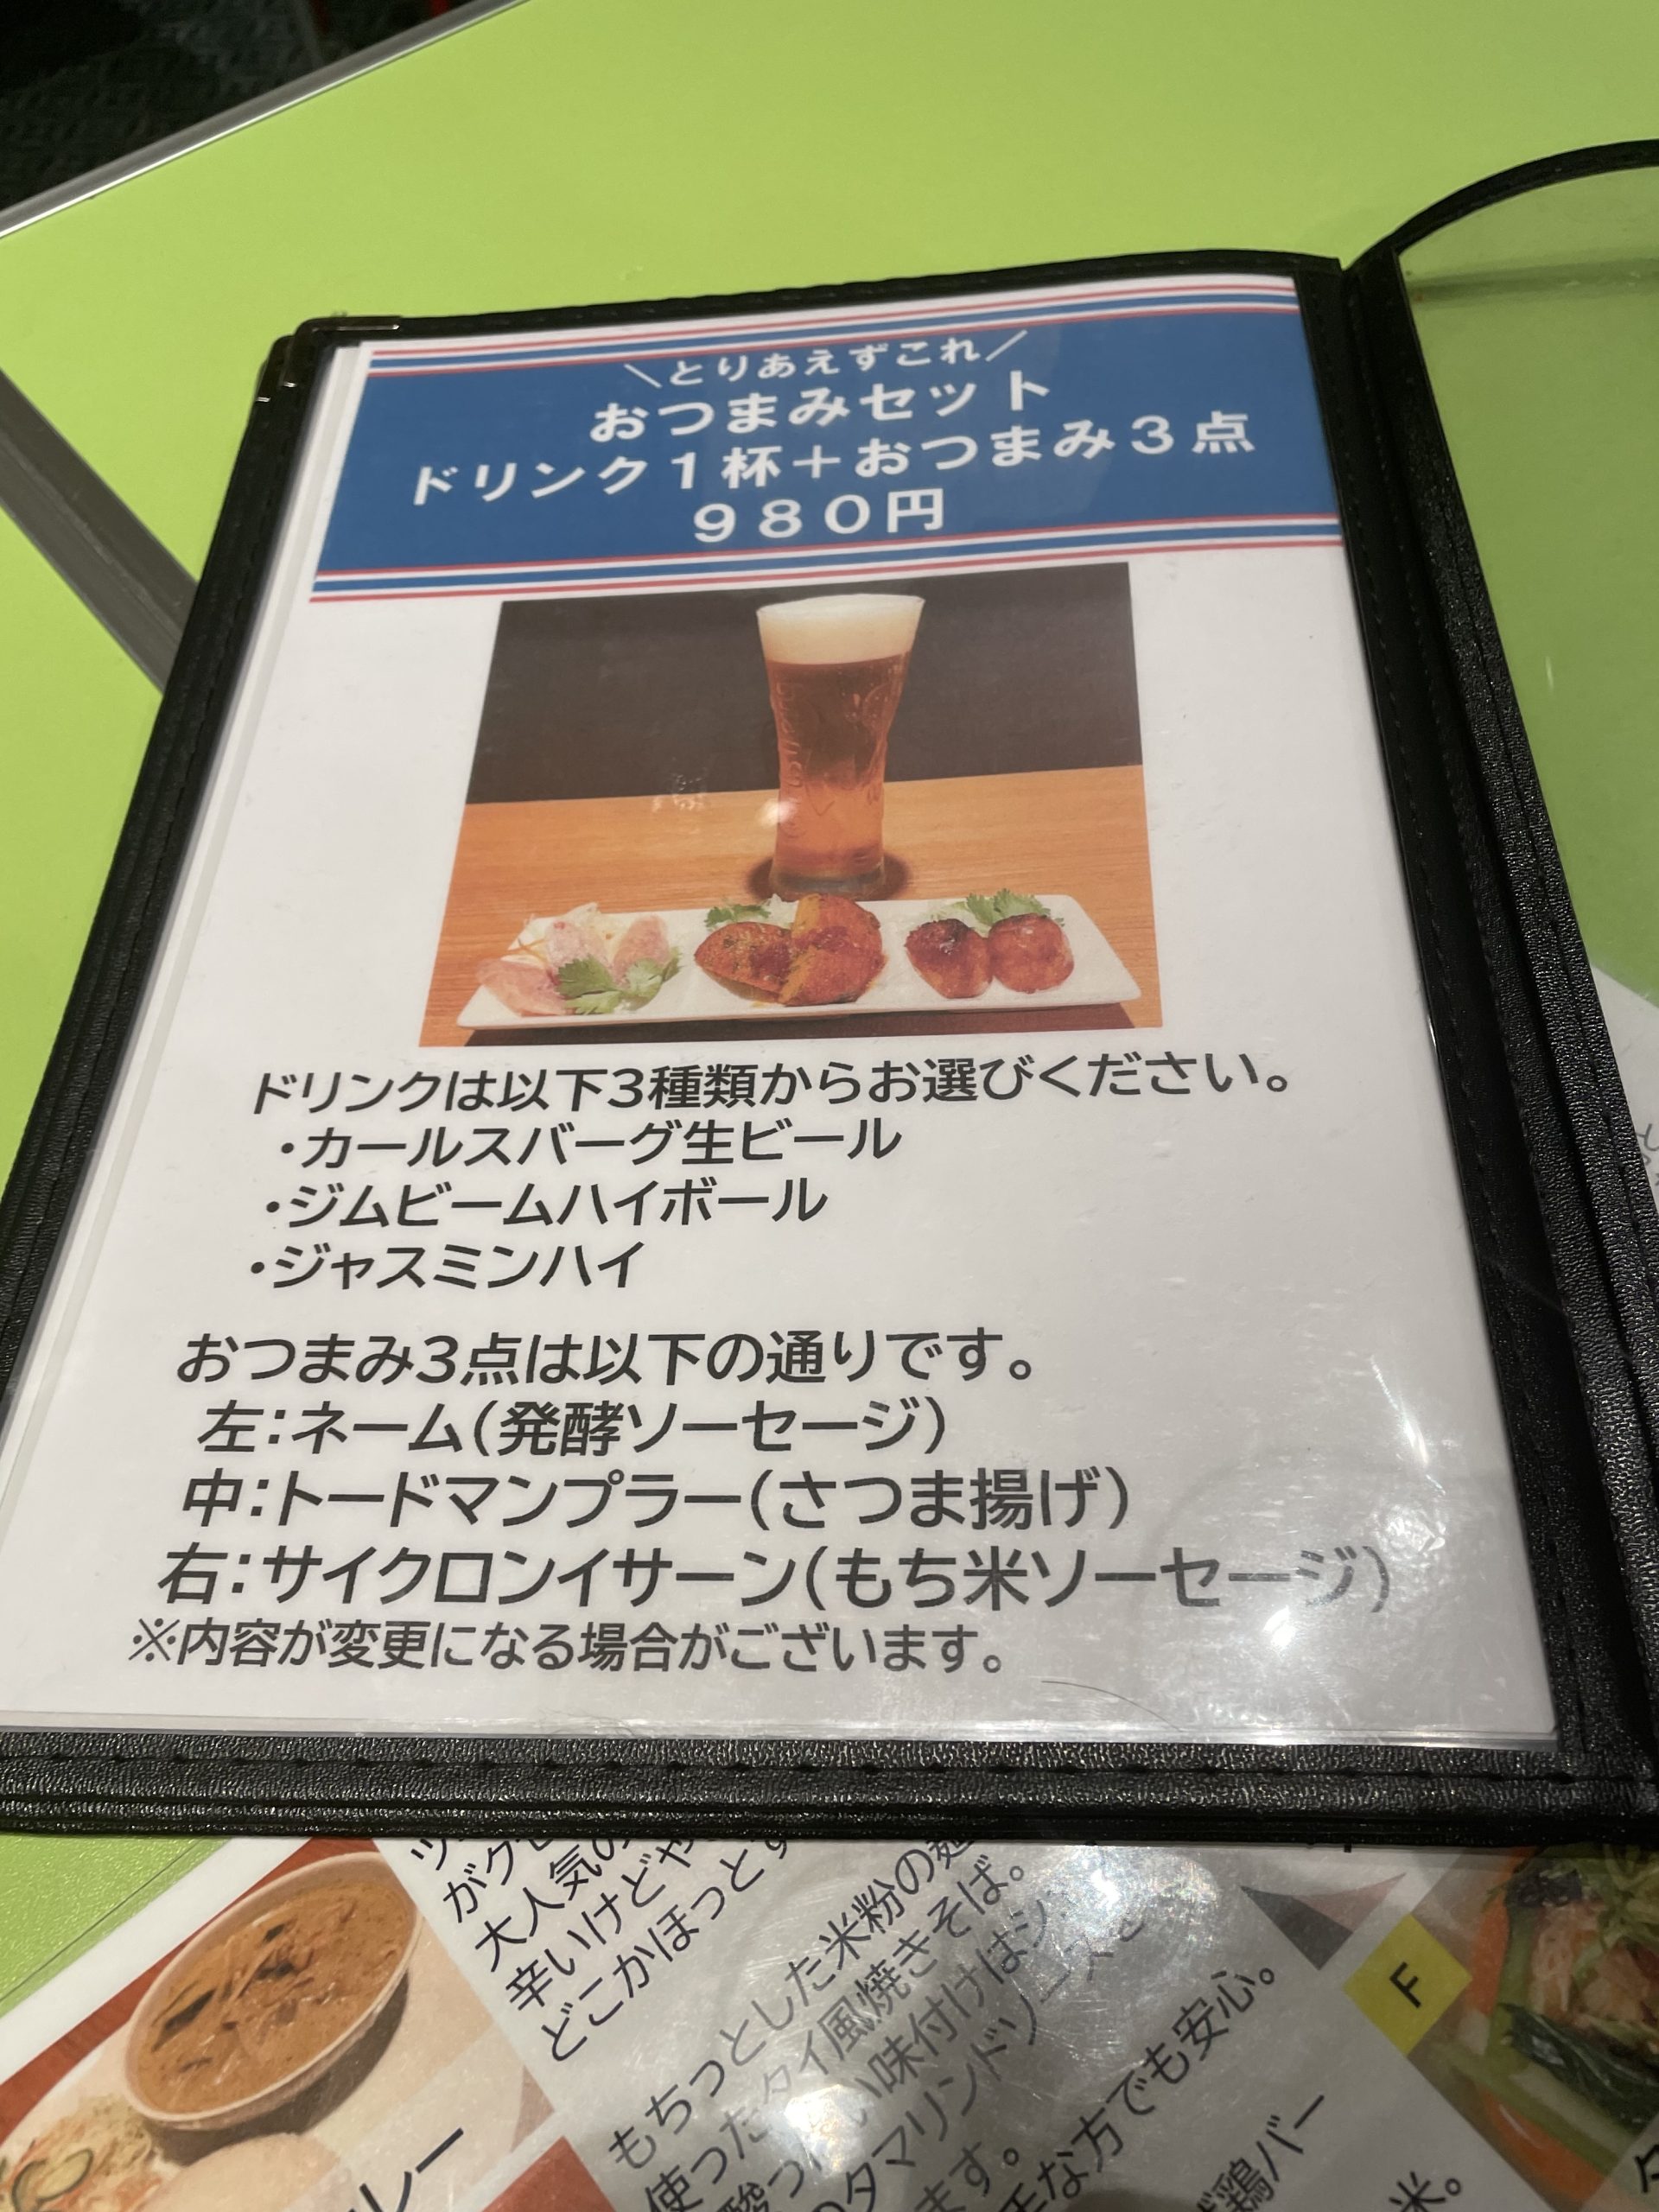 ＼とりあえずこれ／
おつまみセット
ドリンク１杯＋おつまみ３点
９８０円
ドリンクは以下3種類からお選びください。
・カールスバーグ生ビール
・ジムビームハイボール
・ジャスミンハイ
おつまみ3点は以下の通りです。
左：ネーム（発酵ソーセージ）
中：トードマンプラー（さつま揚げ）
右：サイクロンイサーン（もち米ソーセージ）
※内容が変更になる場合がございます。
大人気の
辛いけどや
どこかほっとす
もちっとした米粉の麺
使ったタイ風焼きそば。
味付けは
タマリンドソースと
ます。
な方でも安心。
鶏バー
米。
レー
F